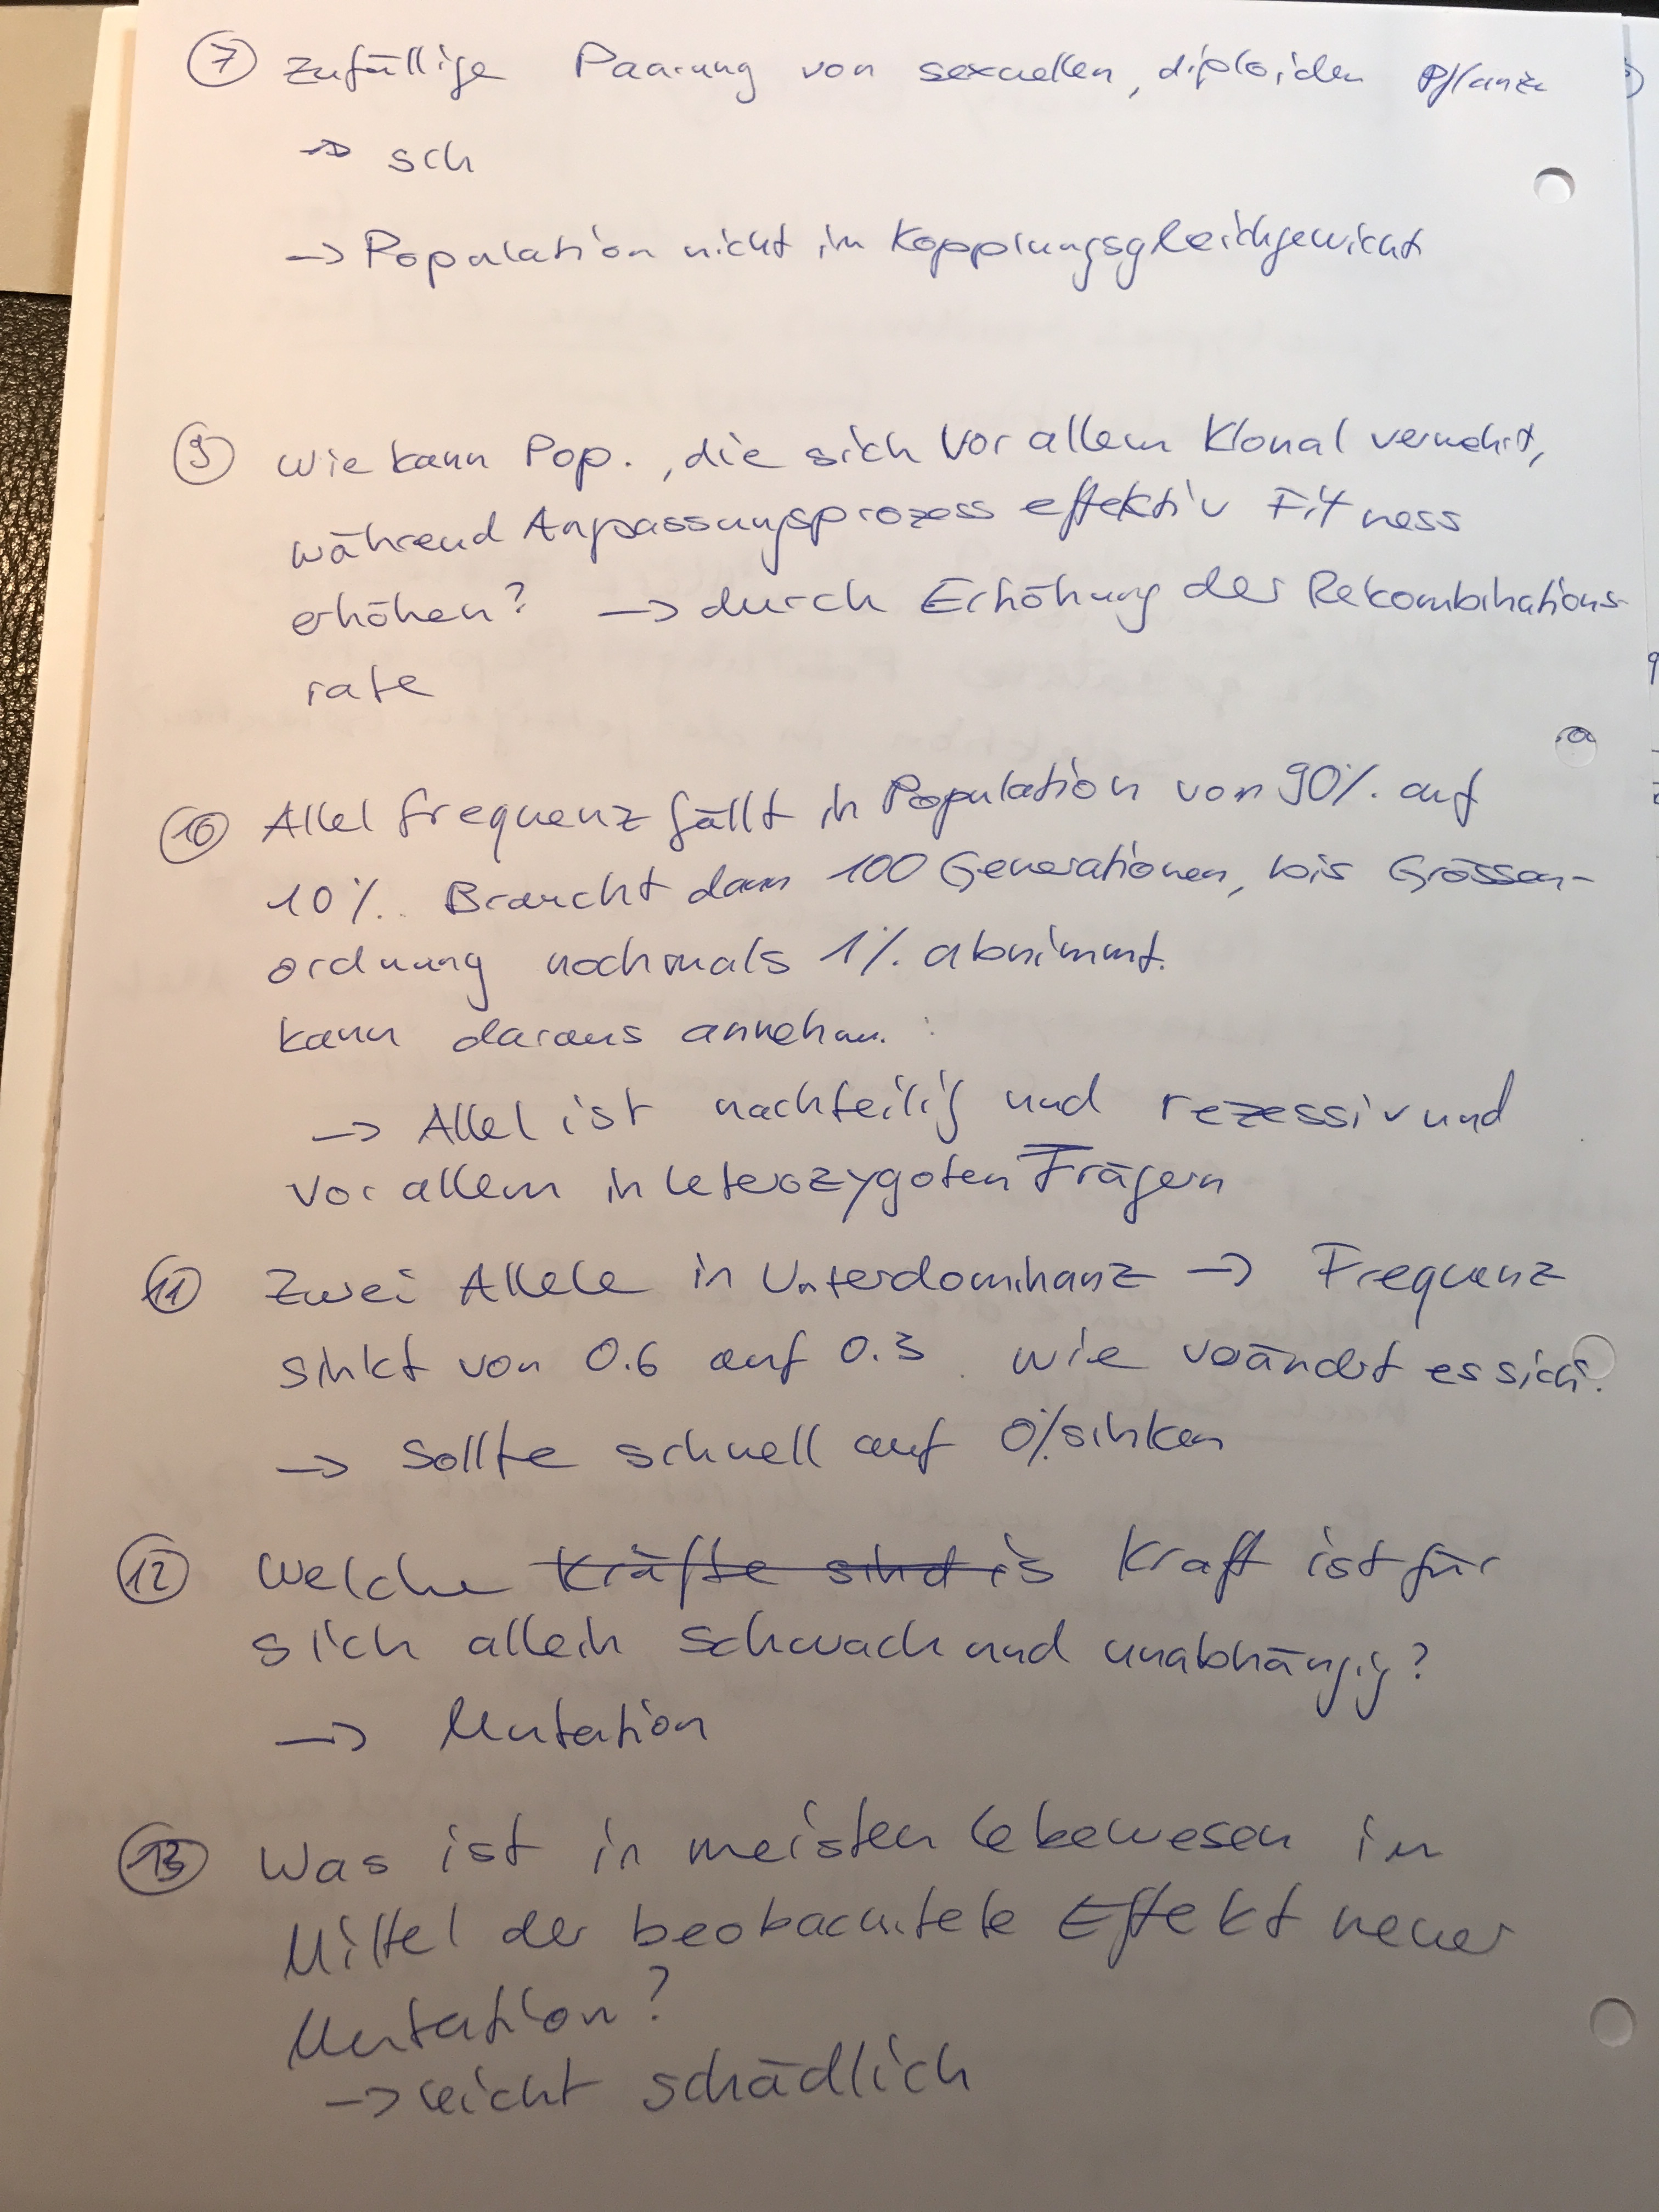 7 Zufällige Paarung von sexuellen, diploiden Pflanze
→ sch
→ Population nicht im Kopplungsgleichgewicht
9 Wie kann Pop., die sich vor allem klonal vermehrt,
während Anpassungsprozess effektiv Fitness
erhöhen? → durch Erhöhung der Rekombinations-
rate
10 Allelfrequenz fällt in Population von 90% auf
10%. Braucht dann 100 Generationen, bis Grössen-
ordnung nochmals 1% abnimmt.
Kann daraus annehm. :
→ Allel ist nachteilig und rezessiv und
vor allem in heterozygoten Trägern
11 Zwei Allele in Unterdominanz → Frequenz
sinkt von 0.6 auf 0.3. Wie verändert es sich.
→ Sollte schnell auf 0% sinken
12 Welche Kräfte sind is Kraft ist für
sich allein schwach und unabhängig?
→ Mutation
13 Was ist in meisten Lebewesen im
Mittel der beobachtete Effekt neuer
Mutation?
→ leicht schädlich